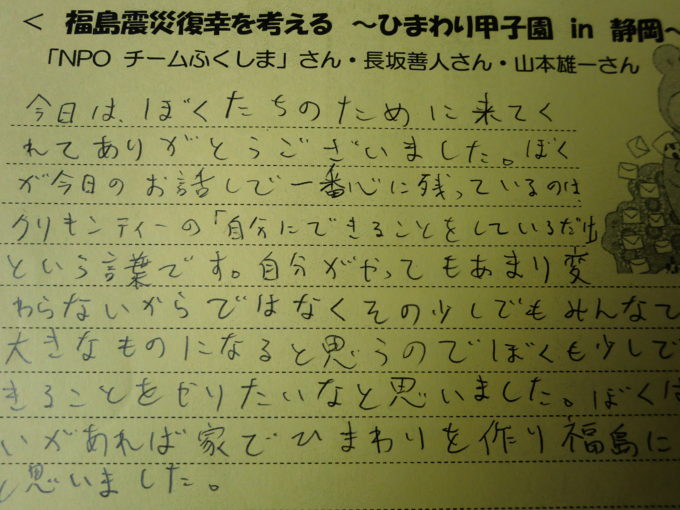 ＜ 福島震災復幸を考える ～ひまわり甲子園 in 静岡～
「NPO チームふくしま」さん・長坂善人さん・山本雄一さん
今日は、ぼくたちのために来てく
れてありがとうございました。ぼく
が今日のお話しで一番心に残っているのは
クリキンディーの「自分にできることをしているだけ
という言葉です。自分がやってもあまり変
わらないからではなくその少しでもみんなで
大きなものになると思うのでぼくも少しで
きることをやりたいなと思いました。ぼくは
いがあれば家でひまわりを作り福島に
と思いました。